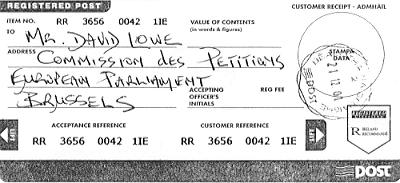 REGISTERED POST
CUSTOMER RECEIPT - ADMHAIL
ITEM NO. RR 3656 0042 1IE
VALUE OF CONTENTS
(in words & figures)
TO
MR. DAVID LOWE
ADDRESS
COMMISSION des PETITIONS
EUROPEAN PARLIAMENT
BRUSSELS
ACCEPTING
OFFICER'S
INITIALS
REG FEE
STAMPA
DATA
POST
ACCEPTANCE REFERENCE
CUSTOMER REFERENCE
RR 3656 0042 1IE
RR 3656 0042 1IE
LIFT
LIFT
R
IRELAND
POST